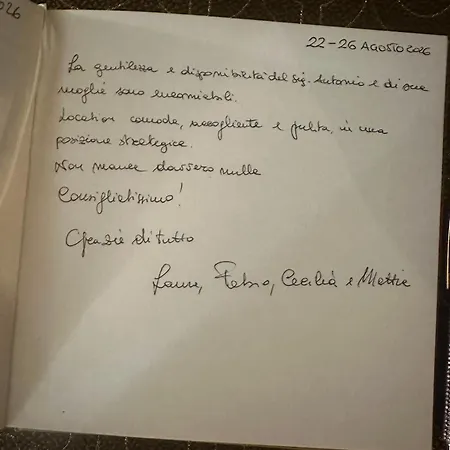 026
22-26 AGOSTO 2026
La gentilezza e disponibilità del Sig. Antonio e di sua
moglie sono encomiabili.
Location comoda, accogliente e pulita, in una
posizione strategica.
Non manca davvero nulla
Consigliatissimo!
Grazie di tutto
Laura, Fabio, Cecilia e Mattia